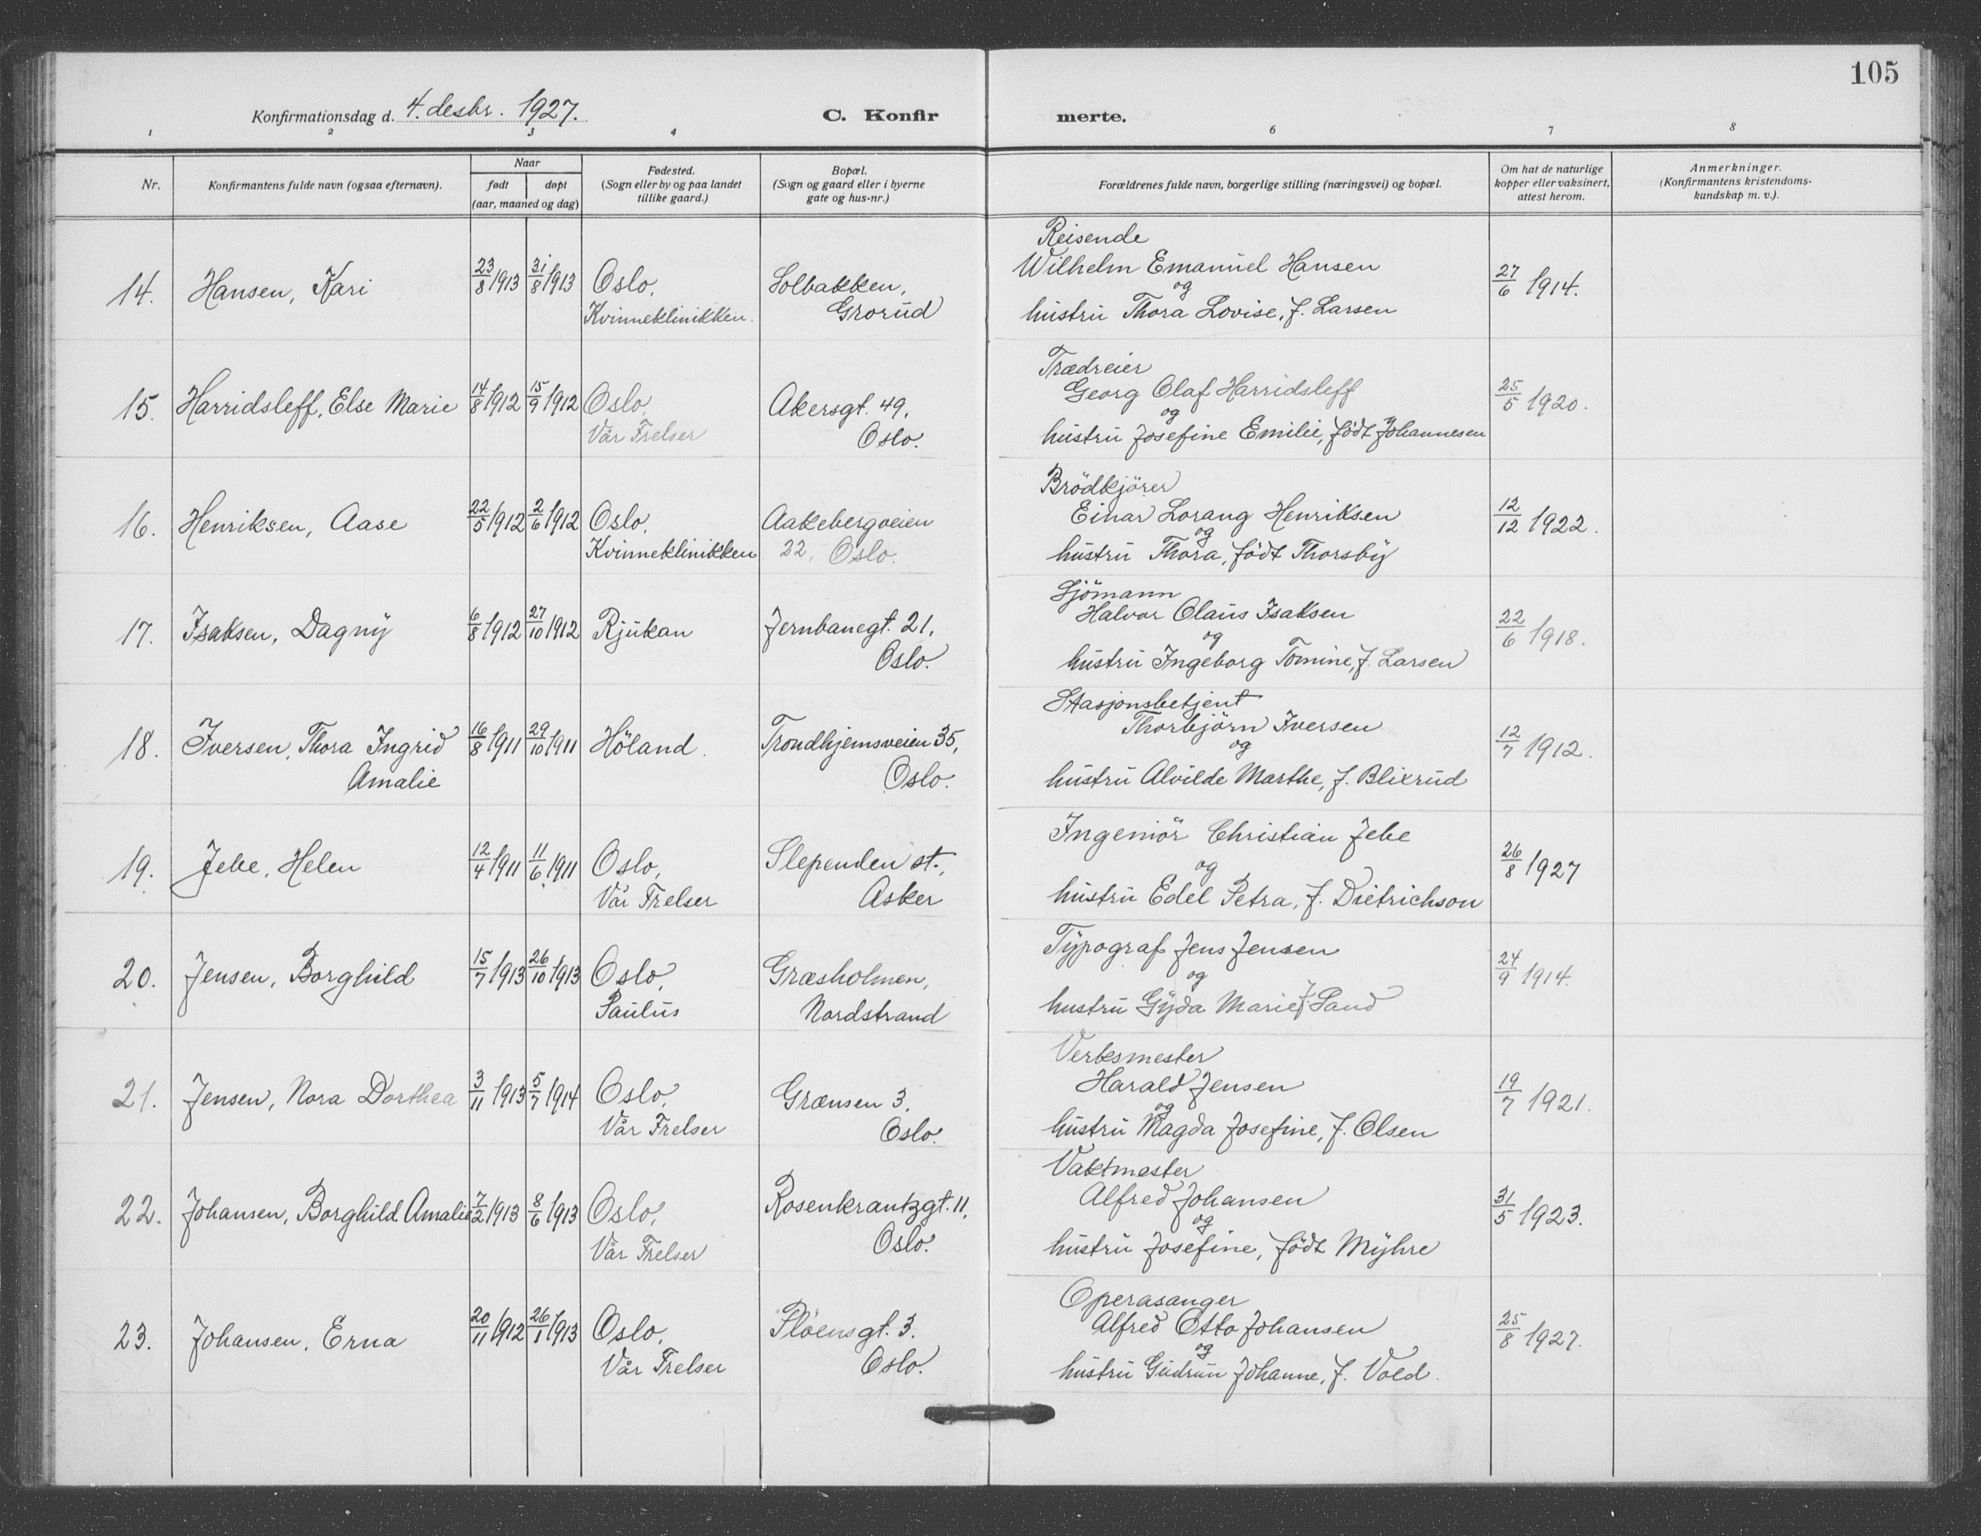 105
Konfirmationsdag d. 4. desbr. 1927.
C. Konfirmerte.
1 2 3 4 6 7 8
Nr.
Konfirmantens fulde navn (ogsaa efternavn).
Naar
født
døpt
(aar, maaned og dag)
Fødested.
(Sogn eller by og paa landet
tillike gaard.)
Bopæl.
(Sogn og gaard eller i byerne
gate og hus-nr.)
Forældrenes fulde navn, borgerlige stilling (næringsvei) og bopæl.
Om hat de naturlige
kopper eller vaksinert,
attest herom.
Anmerkninger.
(Konfirmantens kristendoms-
kundskap m. v.).
14. Hansen, Kari 23/8 1913 31/8 1913 Oslo,
Kvinneklinikken.
Solbakken,
Grorud
Reisende
Wilhelm Emanuel Hansen
og
hustru Thora Lovise, f. Larsen
27/6 1914.
15. Harridsleff, Else Marie 14/8 1912 15/9 1912 Oslo,
Vår Frelser
Akersgt. 49,
Oslo.
Trædreier
Georg Olaf Harridsleff
og
hustru Josefine Emilie, født Johannesen
25/5 1920.
16. Henriksen, Aase 22/5 1912 2/6 1912 Oslo,
Kvinneklinikken
Aakebergveien
22, Oslo.
Brödkjörer
Einar Lorang Henriksen
og
hustru Thora, födt Thorsby
12/12 1922.
17. Isaksen, Dagny 6/8 1912 27/10 1912 Rjukan
Jernbanegt. 21,
Oslo.
Sjömann
Halvor Olaus Isaksen
og
hustru Ingeborg Tomine, f. Larsen
22/6 1918.
18. Iversen, Thora Ingrid
Amalie
16/8 1911 29/10 1911 Höland.
Trondhjemsveien 35,
Oslo.
Stasjonsbetjent
Thorbjörn Iversen
og
hustru Alvilde Marthe, f. Blixrud
12/7 1912.
19. Jebe, Helen 12/4 1911 11/6 1911 Oslo,
Vår Frelser
Slependen st.,
Asker
Ingeniör Christian Jebe
og
hustru Edel Petra, f. Dietrichson
26/8 1927
20. Jensen, Borghild 15/7 1913 26/10 1913 Oslo,
Paulus
Græsholmen,
Nordstrand
Typograf Jens Jensen
og
hustru Gyda Marie f. Sand
24/9 1914.
21. Jensen, Nora Dorthea 3/11 1913 5/7 1914 Oslo,
Vår Frelser
Grænsen 3,
Oslo.
Verksmester
Harald Jensen
og
hustru Magda Josefine, f. Olsen
19/7 1921.
22. Johansen, Borghild Amalie 7/2 1913 8/6 1913 Oslo,
Vår Frelser
Rosenkrantzgt. 11,
Oslo.
Vaktmester
Alfred Johansen
og
hustru Josefine, født Myhre
31/5 1923.
23. Johansen, Erna 20/11 1912 26/1 1913 Oslo,
Vår Frelser
Pløensgt. 3.
Oslo.
Operasanger
Alfred Otto Johansen
og
hustru Gudrun Johanne, f. Vold.
25/8 1927.